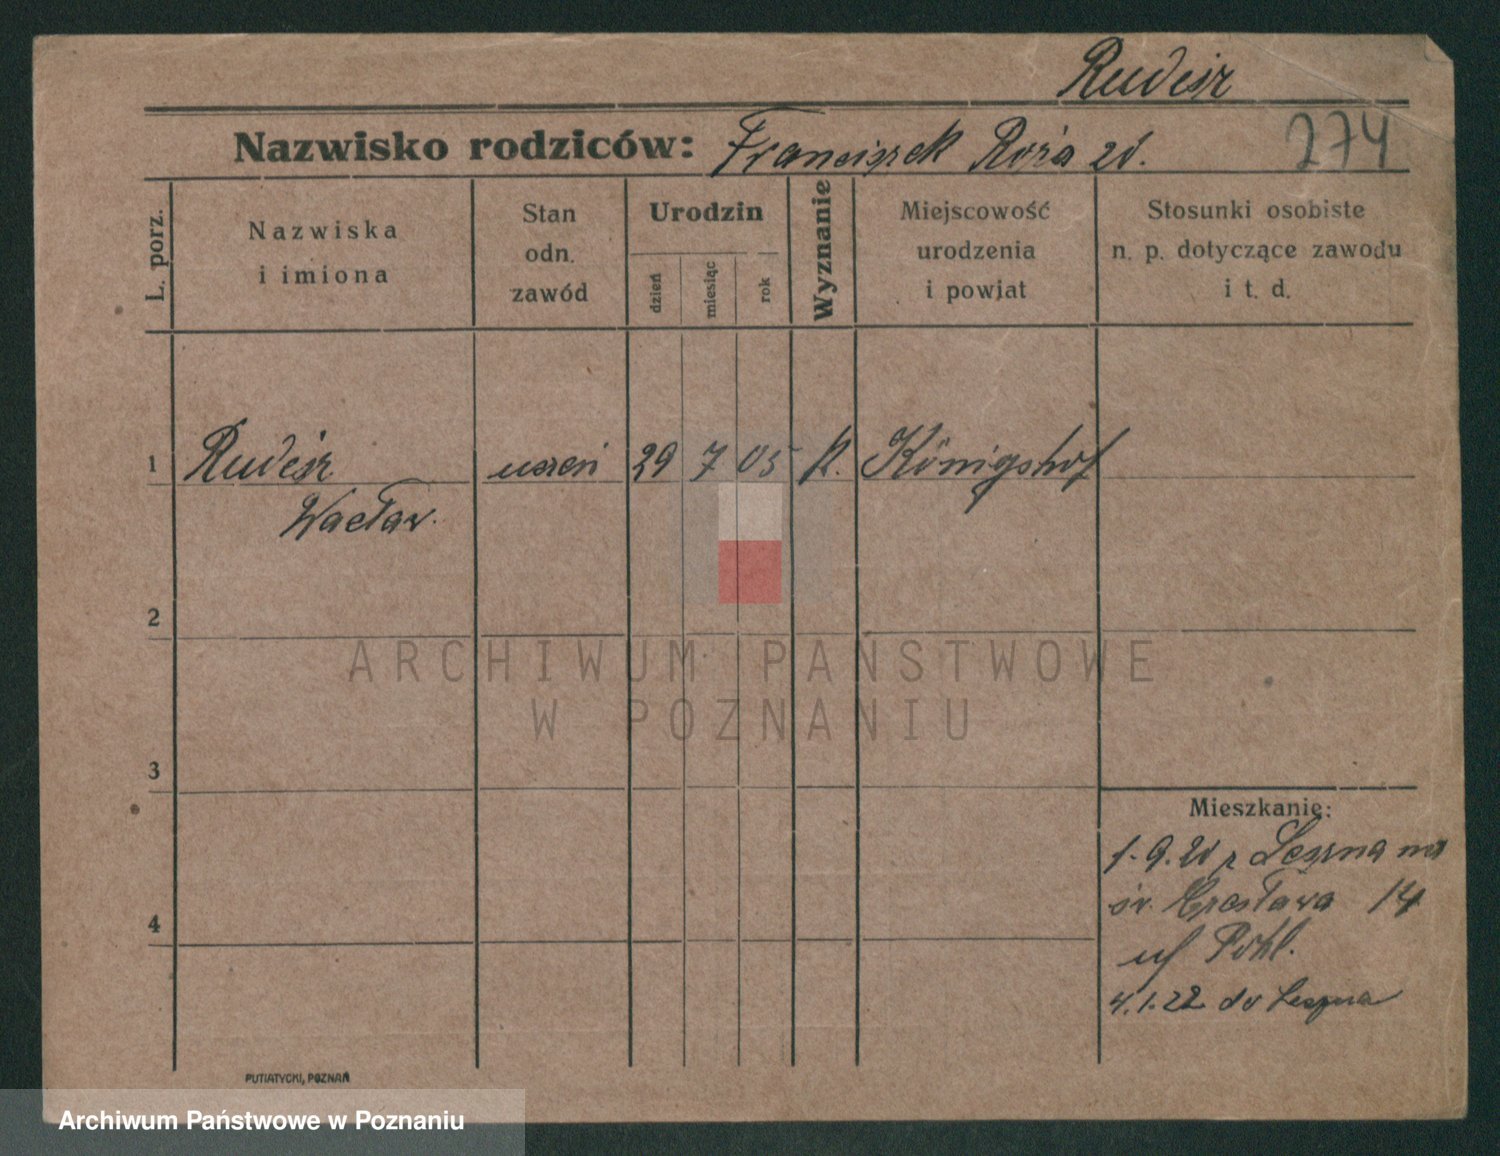 Rudeisz
Nazwisko rodziców: Franciszek Róża zd. 274
L. porz.
Nazwiska
i imiona
Stan
odn.
zawód
Urodzin
dzień
miesiąc
rok
Wyznanie
Miejscowość
urodzenia
i powiat
Stosunki osobiste
n. p. dotyczące zawodu
i t. d.
1 uczeń 29 7 05 k. Königshof
Wacław.
2
3
4
Mieszkanie:
1.9.21 z Leszna na
św. Czesława 14
u/ Pohl.
4.1.22 do Leszna
PUTIATYCKI, POZNAŃ
ARCHIWUM PAŃSTWOWE
W POZNANIU
Archiwum Państwowe w Poznaniu